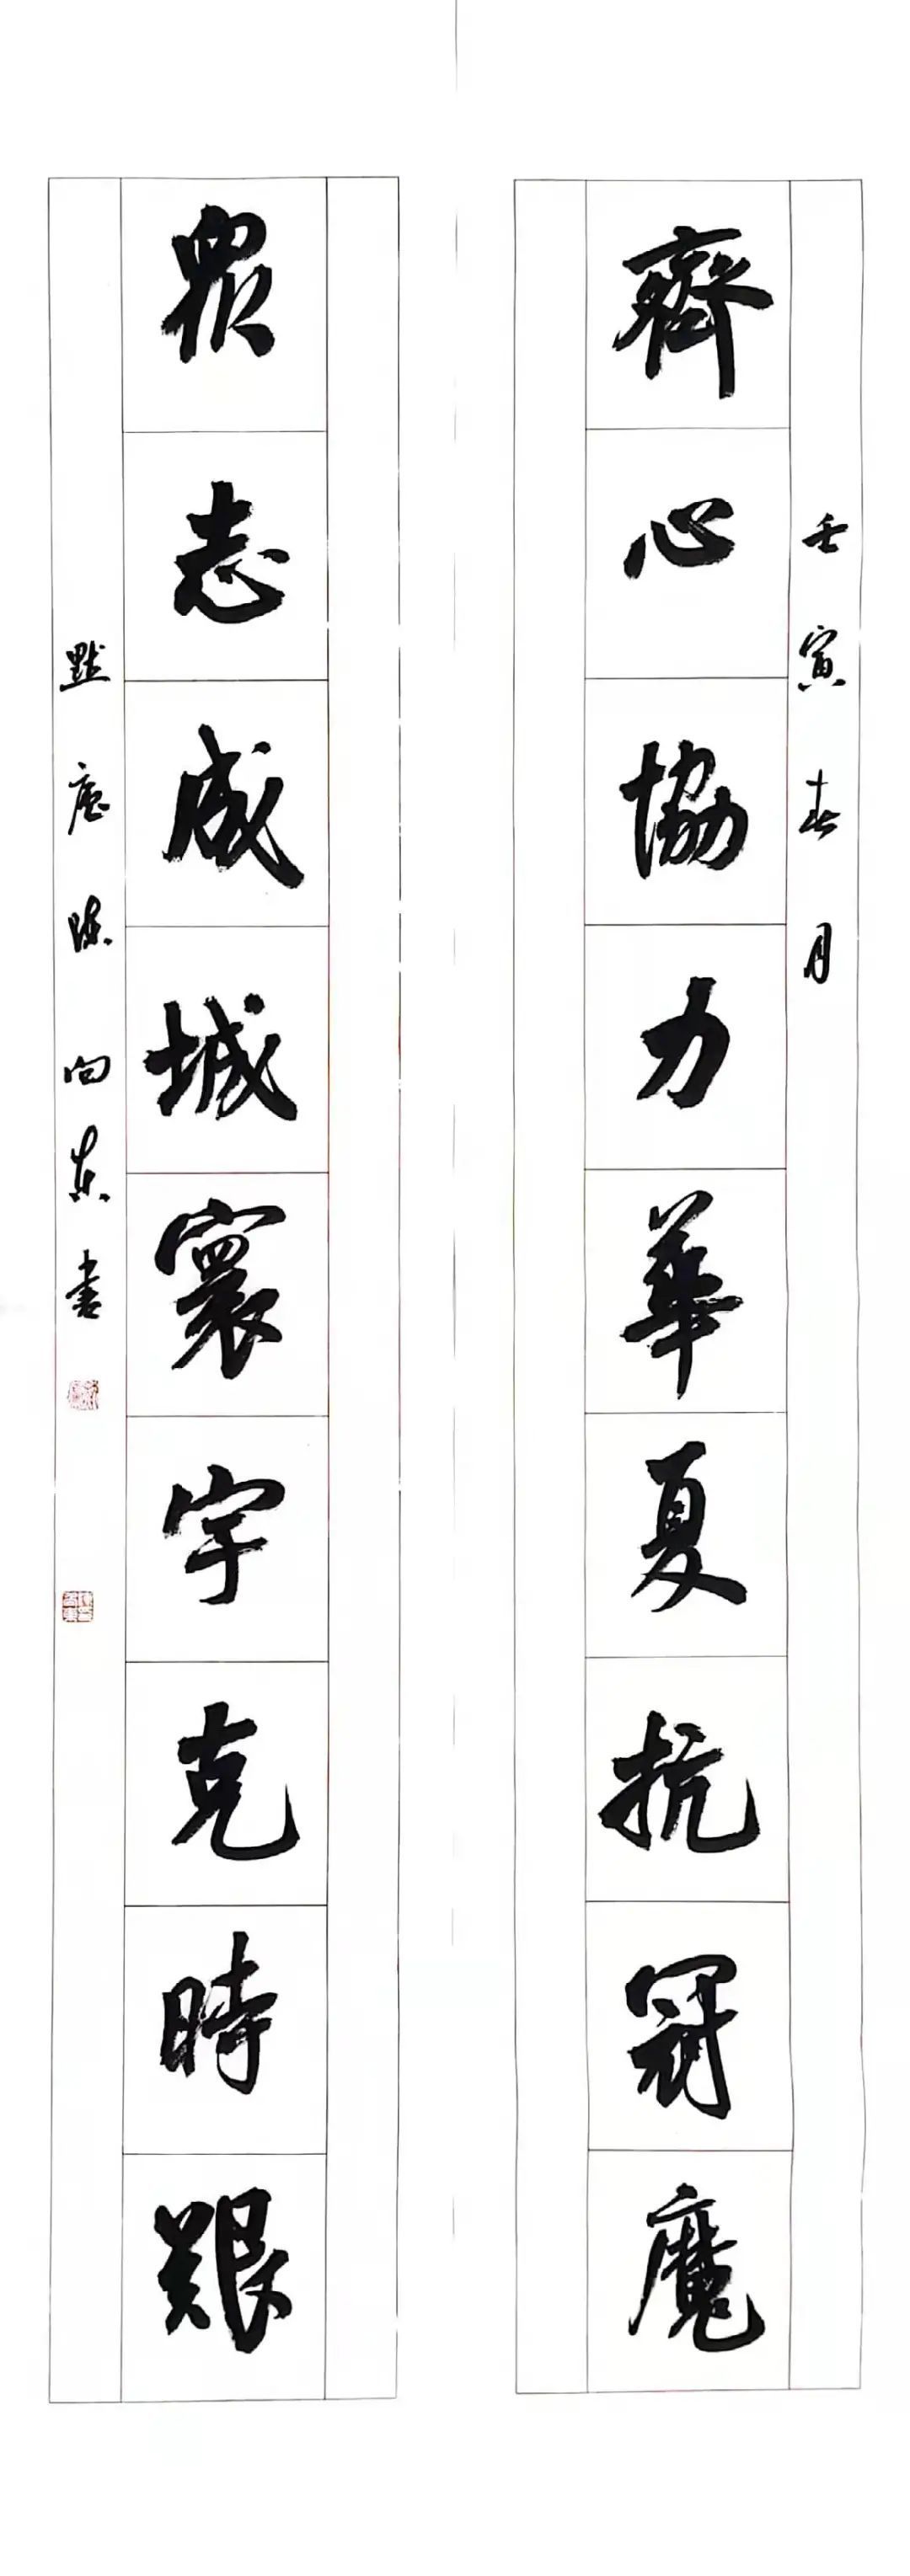 壬寅春月
齊心協力華夏抗冠魔
眾志成城寰宇克時艱
默庵陳向東書